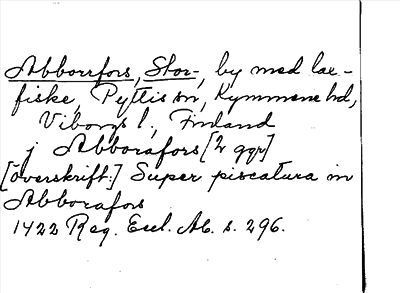 Abborrfors, Stor-, by med lax-
fiske, Pyttis sn, Kymmene hd,
Viborgs l., Finland
j Abborafors [2 ggr]
[överskrift:] Super piscatura in
Abborafors
1422 Reg. Eccl. Ab. s. 296.